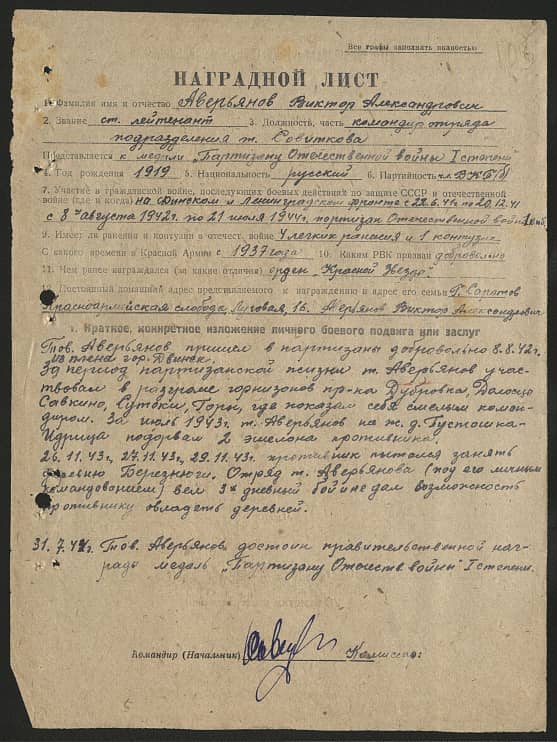 Все графы заполнять полностью
НАГРАДНОЙ ЛИСТ
1. Фамилия имя и отчество Аверьянов Виктор Александрович
2. Звание ст. лейтенант 3. Должность, часть командир отряда
подразделения т. Совиткова
Представляется к медали „Партизану Отечественной войны I степени
4. Год рождения 1919 5. Национальность русский 6. Партийность чл. ВКП/б/
7. Участие в гражданской войне, последующих боевых действиях по защите СССР и отечественной
войне (где и когда) на Финском и Ленинградском фронте с 22.6.41г. по 20.12.41
с 8го августа 1942г. по 21 июля 1944г. партизан Отечественной войны
9. Имеет ли ранения и контузии в отечест. войне 4 легких ранения и 1 контузию
С какого времени в Красной Армии с 1937 года 10. Каким РВК призван добровольно
11. Чем ранее награждался (за какие отличия) орден "Красной Звезды"
12. Постоянный домашний адрес представляемого к награждению и адрес его семьи г. Саратов
Красноармейская слободка, Луговая, 16. Аверьянов Виктор Александрович
1. Краткое, конкретное изложение личного боевого подвига или заслуг
Тов. Аверьянов пришел в партизаны добровольно 8.8.42г.
из плена гор. Двинск.
За период партизанской жизни т. Аверьянов участ-
вовал в разгроме горнизонов пр-ка Дубровка, Долосцо
Савкино, Сутоки, Горы, где показал себя смелым коман-
диром. За июль 1943г. т. Аверьянов на ж.д. Пустошка-
Идрица подорвал 2 эшелона противника.
26.11.43г, 27.11.43г, 29.11.43г. противник пытался занять
деревню Березнюги. Отряд т. Аверьянова (под его личным
командованием) вел 3х дневный бой и не дал возможность
противнику овладеть деревней.
31.7.44г. Тов. Аверьянов достоин правительственной наг-
рады медаль „Партизану Отечеств войны" I степени.
Командир (Начальник) Комиссар: